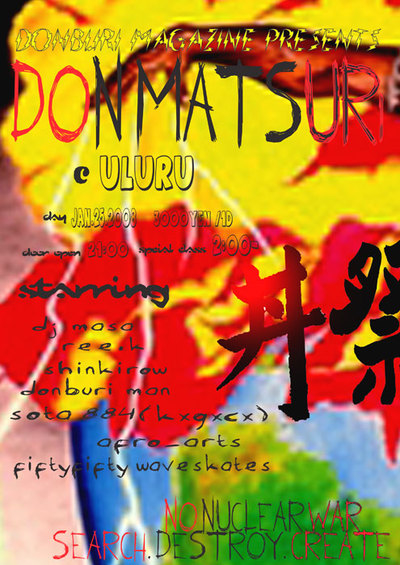 DONBURI MAGAZINE PRESENTS
DONMATSURI
@ ULURU
day JAN.25.2008 3000YEN/1D
door open 21:00 special class 2:00~
starring
dj masa
ree.k
shinkirow
donburi man
sota 884(kxgxcx)
afro_arts
fiftyfifty waveskates
丼祭
NO NUCLEAR WAR
SEARCH.DESTROY.CREATE